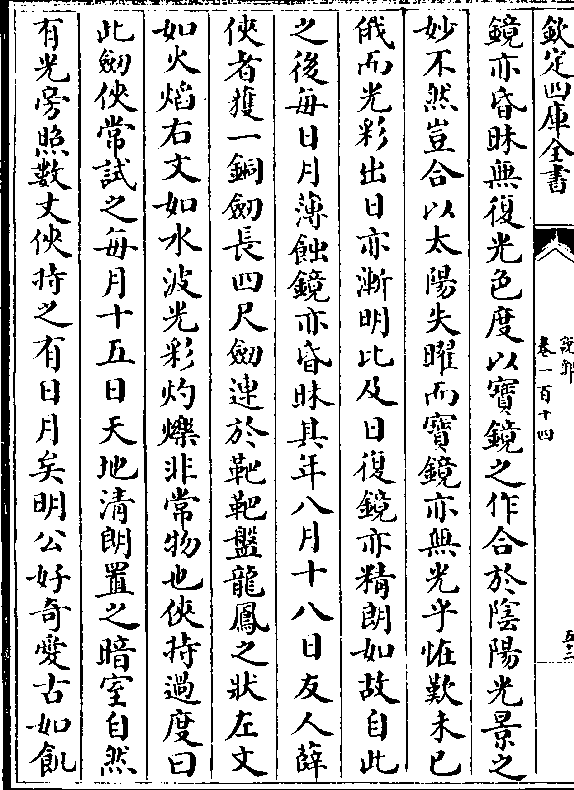 欽定四庫全書
說郛
卷一百十四
五十二
鏡亦昏昧無復光色度以寶鏡之作合於陰陽光景之
妙不然豈合以太陽失曜而寶鏡亦無光乎恠歎未已
俄而光彩出日亦漸明比及日復鏡亦精朗如故自此
之後每日月薄蝕鏡亦昏昧其年八月十八日友人薛
俠者獲一銅劒長四尺劒連於靶靶盤龍鳳之狀左文
如火焰右文如水波光彩灼爍非常物也俠持過度曰
此劒俠常試之每月十五日天地清朗置之暗室自然
有光旁照數丈俠持之有日月矣明公好奇愛古如飢